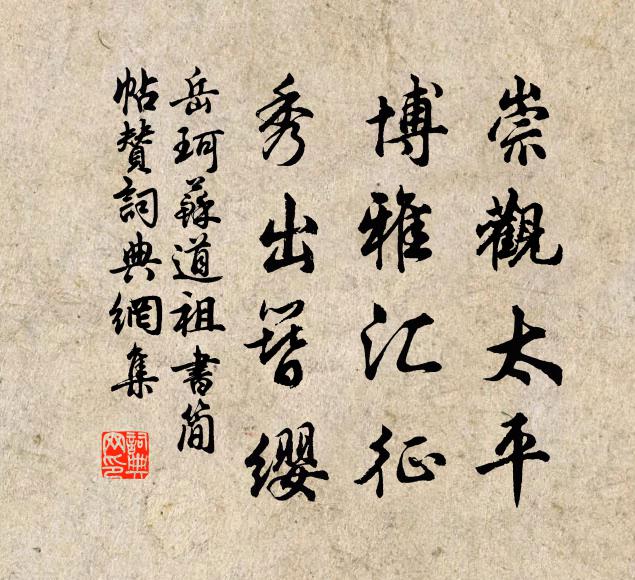 崇觀太平
博雅汇征
秀出簪纓
岳珂蘇道祖書简
帖贊詞典網集
詞典网印